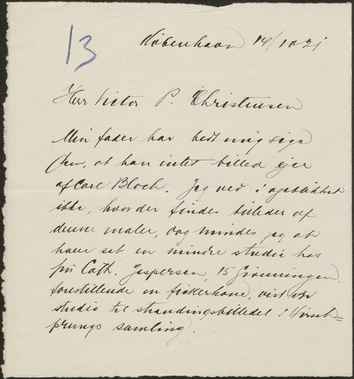 13
København 14/10 21
Herr Victor P. Christensen
Min fader har bedt mig sige
Dem, at han intet billed ejer
af Carl Bloch. Jeg ved i øjeblikket
ikke, hvor der findes billeder af
denne maler, dog mindes jeg at
have set en mindre studie hos
frk Cath. Jespersen, 15 Grønningen
forestillende en fiskerkone, vist
studie til strandingsbilledet i
samling.